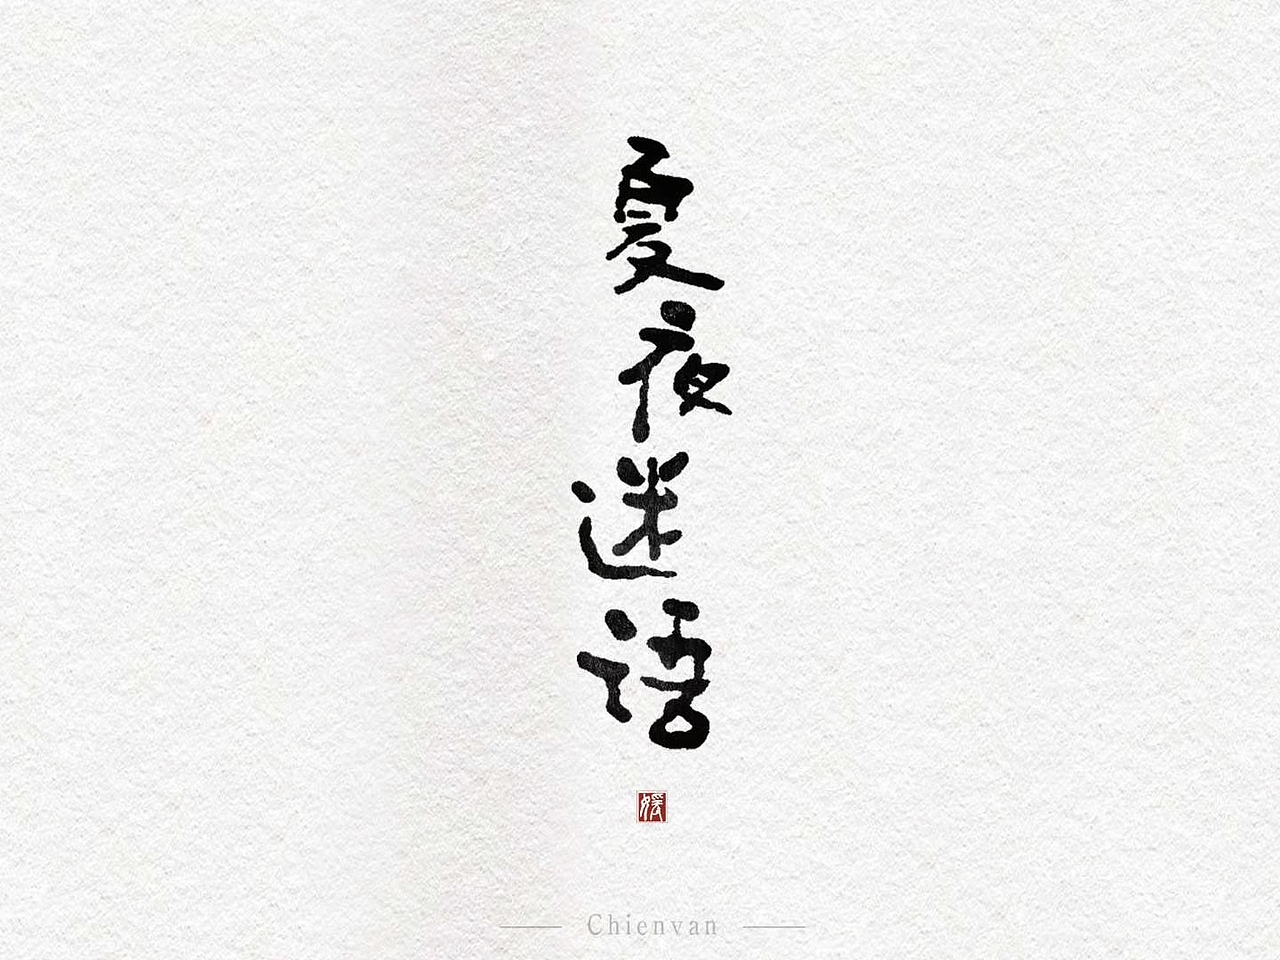 夏夜迷语
媛
Chienvan